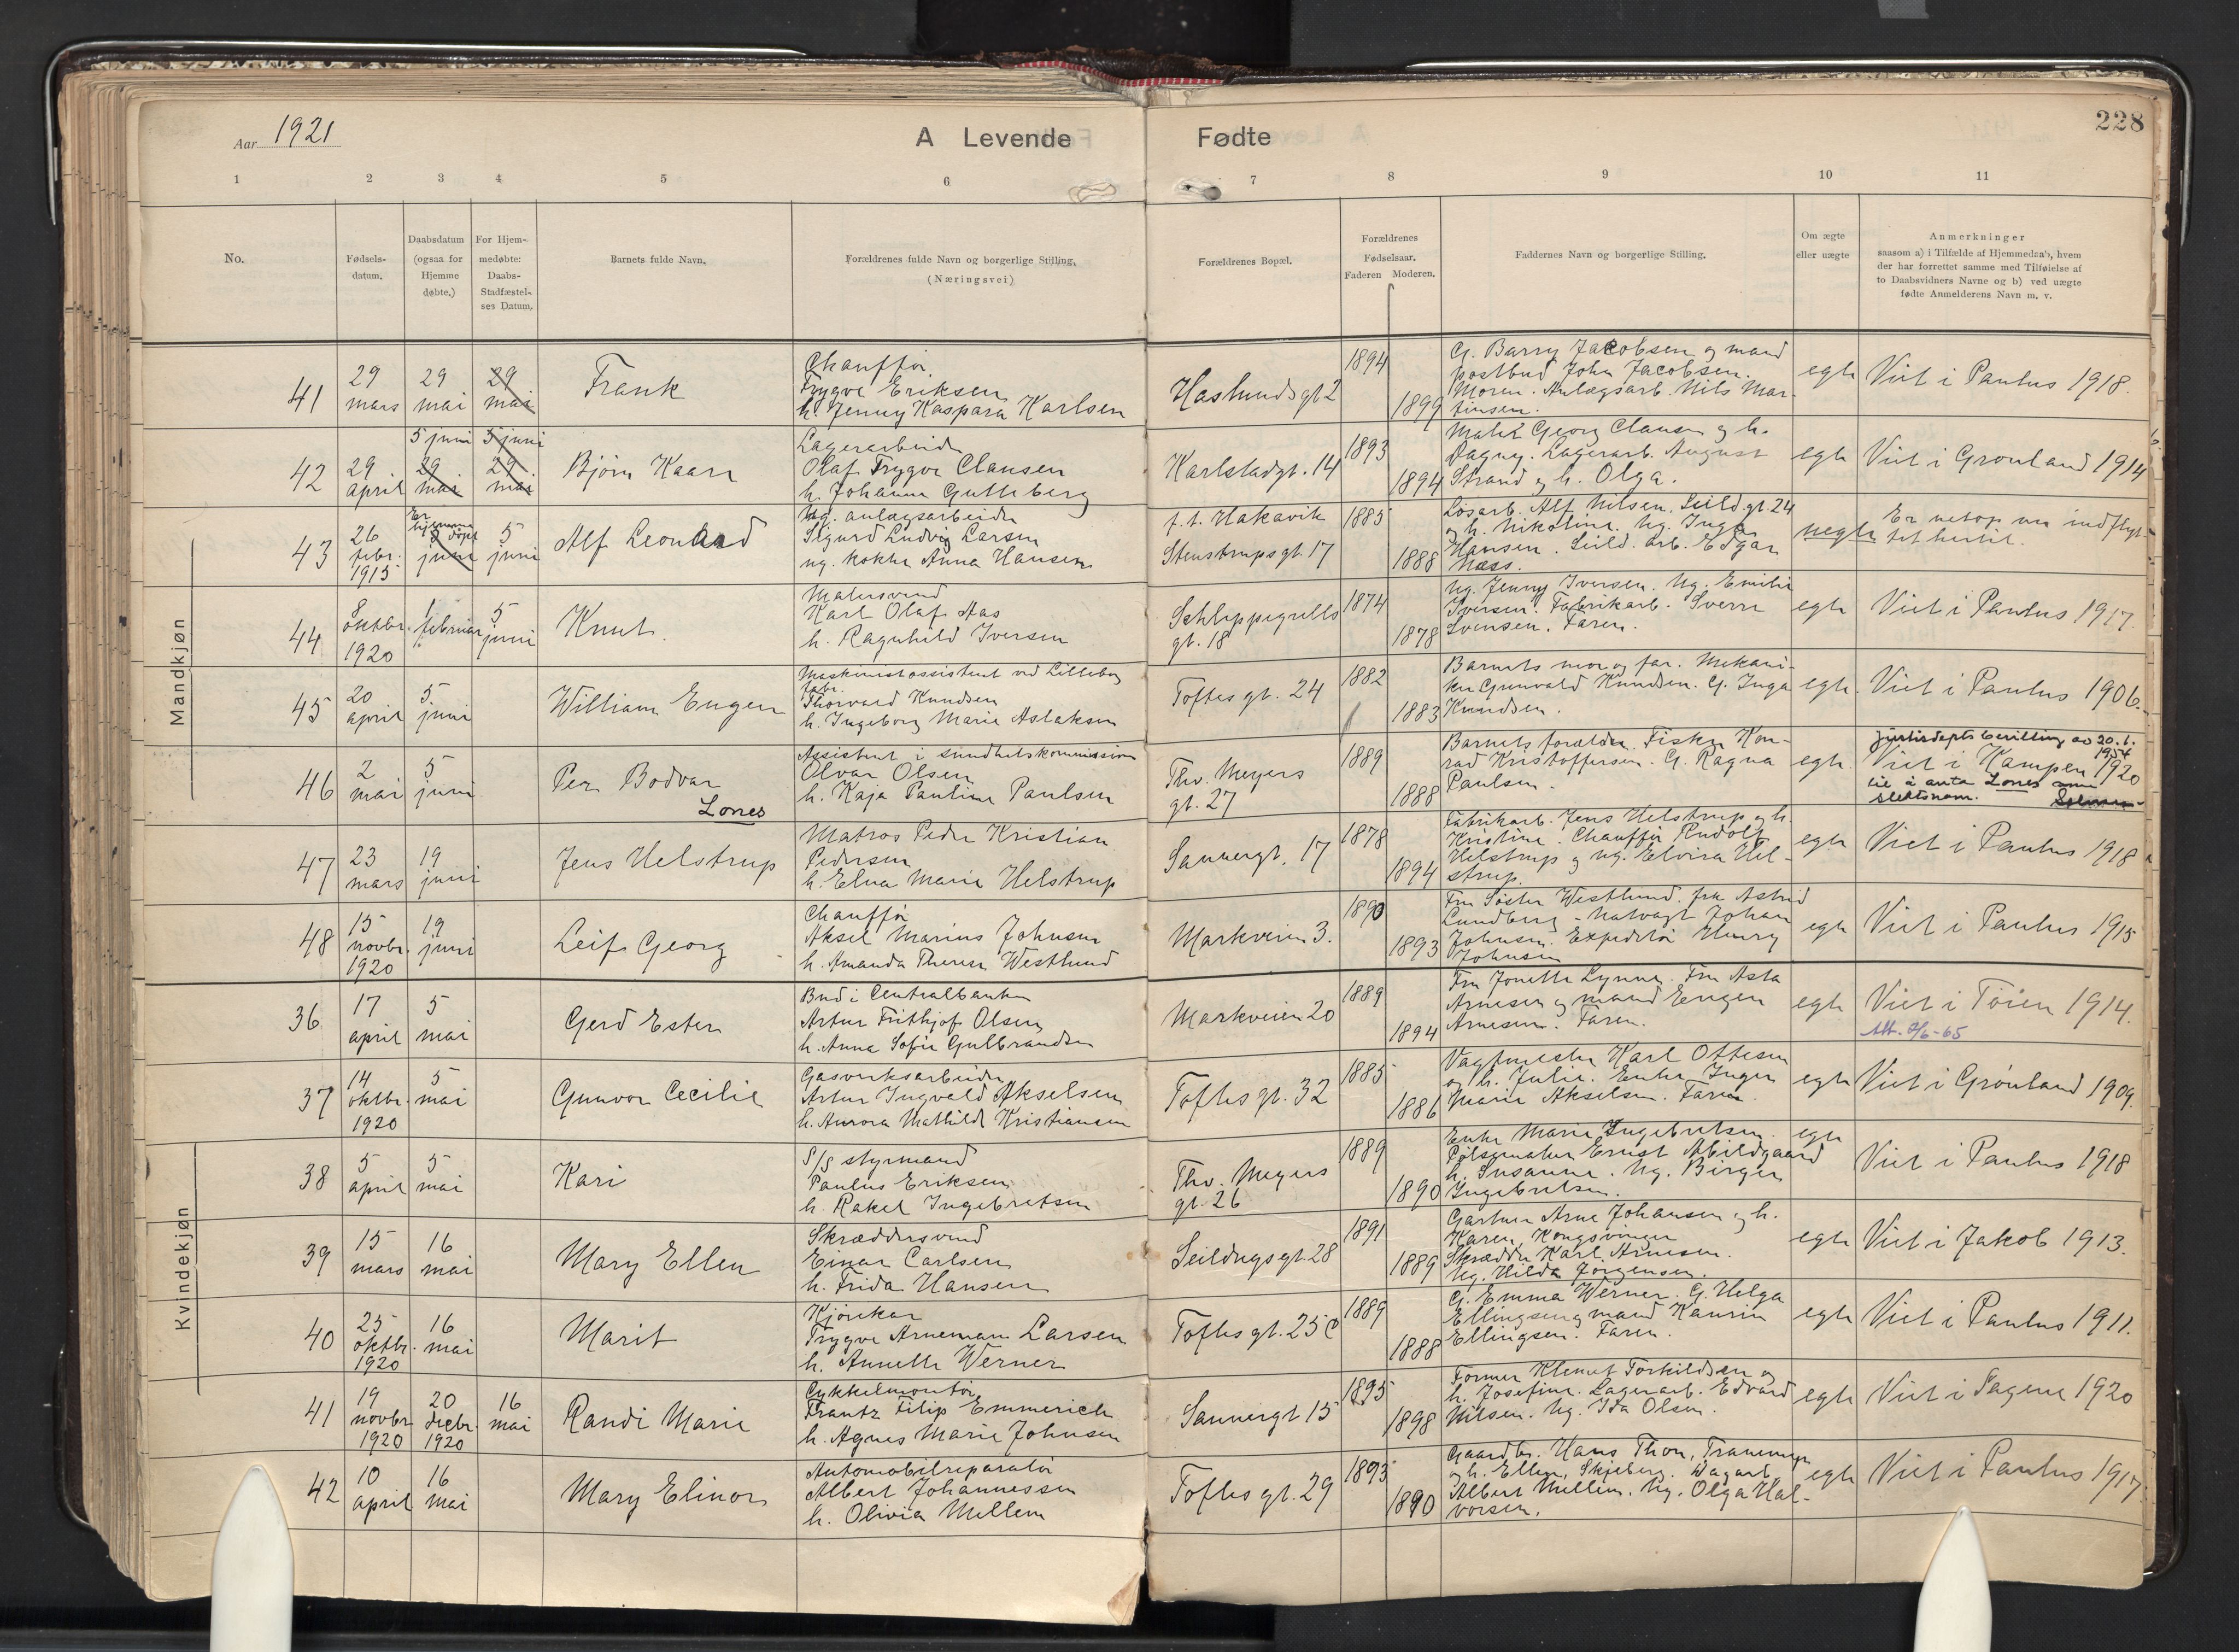 Aar 1921
A Levende Fødte
228
1 2 3 4 5 6 7 8 9 10 11
No.
Fødsels-
datum.
Daabsdatum
(ogsaa for
Hjemme
døbte.)
For Hjem-
medøbte:
Daabs-
Stadfæstel-
ses Datum.
Barnets fulde Navn.
Forældrenes fulde Navn og borgerlige Stilling.
(Næringsvei)
Forældrenes Bopæl.
Forældrenes
Fødselsaar.
Faderen Moderen.
Faddernes Navn og borgerlige Stilling.
Om ægte
eller uægte
Anmerkninger
saasom a) i Tilfælde af Hjemmedaab, hvem
der har forrettet samme med Tilføielse af
to Daabsvidners Navne og b) ved uægte
fødte Anmelderens Navn m. v.
Mandkjøn
41
29
mars
29
mai
29
mai
Frank
Chauffør
Trygve Eriksen
h. Jenny Kaspara Karlsen
Haslundsgt 2
1894
1899
G. Barry Jacobsen og mand
postbud John Jacobsen.
Moren. Anlægsarb. Nils Mar-
tinsen.
egte
Viet i Paulus 1918.
42
29
april
5 juni
29
mai
5 juni
29
mai
Bjørn Kaare
Lagerarbeider
Olaf Trygve Clausen
h. Johanne Gutteberg
Karlstadgt. 14
1893
1894
Maler Georg Clausen og h.
Dagny. Lagerarb. August
Strand og h. Olga.
egte
Viet i Grønland 1914
43
26
febr.
1915
Er
hjemme
døpt
5
juni
5
juni
Alf Leonard
Ug. anlægsarbeider
Sigurd Ludvig Larsen
ug. kokke Anna Hansen
f. t. Hakavik
Stenstrupsgt. 17
1885
1888
Løsarb. Alf Nilsen, Seildgt. 24
og h. Nikoline. Ug. Inga
Hansen. Seild. arb. Edgar
Næss.
uegte
Er netop nu indflyt-
tet hertil.
44
8
oktbr.
1920
1
februar
5
juni
Knut.
Malersvend
Karl Olaf Aas
h. Ragnhild Iversen
Schleppegrells
gt. 18
1874
1878
Ug. Jenny Iversen. Ug. Emilie
Iversen. Fabrikarb. Sverre
Svensen. Faren.
egte
Viet i Paulus 1917.
45
20
april
5
juni
William Eugen
Maskinistassistent ved Lilleborg
fabr.
Thorvald Knudsen
h. Ingeborg Marie Aslaksen
Toftes gt. 24
1882
1883
Barnets mor og far. Mekani-
ker Gunvald Knudsen. G. Inga
Knudsen.
egte.
Viet i Paulus 1906.
46
2
mai
5
juni
Per Bodvar
Lones
Assistent i sundhetskommission
Olvar Olsen
h. Kaja Pauline Paulsen
Thv. Meyers
gt. 27
1889
1888
Barnets forældre. Fisker Kon-
rad Kristoffersen. G. Ragna
Paulsen.
egte.
Justisdepts bevilling av 20.1.
1954
Viet i Kampen 1920
til å anta Lones som
slektsnavn.
47
23
mars
19
juni
Jens Helstrup
Matros Peder Kristian
Pedersen
h. Elna Marie Helstrup
Sannergt. 17
1878
1894
Fabrikarb. Jens Helstrup og h.
Kristine. Chauffør Rudolf
Helstrup og ug. Elvira Hel-
strup.
egte
Viet i Paulus 1918
48
15
novbr.
1920
19
juni
Leif Georg
Chauffør
Aksel Marius Johnsen
h. Amanda Therese Westlund
Markveien 3.
1890
1893
Fru Søster Westlund. frk Astrid
Lundberg - Natvagt Johan
Johnsen. Expeditør Henry
Johnsen
egte
Viet i Paulus 1915
Kvindekjøn
36
17
april
5
mai
Gerd Ester
Bud i Centralbanken
Artur Frithjof Olsen
h. Anna Sofie Gulbrandsen
Markveien 20
1889
1894
Fru Jonette Lynne. Fru Asta
Arnesen og mand Eugen
Arnesen. Faren.
egte
Viet i Tøien 1914.
Att. 2/6-65
37
14
oktbr.
1920
5
mai
Gunvor Cecilie
Gasverksarbeider
Artur Ingvald Akselsen
h. Aurora Mathilde Kristiansen
Toftesgt. 32
1885
1886
Vagtmester Karl Ottesen
og h. Julie. Enke Inger
Marie Akselsen. Faren.
egte
Viet i Grønland 1909.
38
5
april
5
mai
Kari
S/S styrmand
Paulus Eriksen
h. Rakel Ingebretsen
Thv. Meyers
gt. 26
1889
1890
Enke Marie Ingebretsen.
Pølsemaker Ernst Abildgaard
h. Susanne. Ug. Birger
Ingebretsen.
egte
Viet i Paulus 1918
39
15
mars
16
mai
Mary Ellen
Skræddersvend
Einar Carlsen
h. Frida Hansen
Seildugsgt. 28
1891
1889
Gartner Arne Johansen og h.
Karen, Kongsvinger
Skrædder Karl Arnesen.
Ug. Hilda Jørgensen.
egte
Viet i Jakob 1913.
40
25
oktbr.
1920
16
mai
Marit
Kjørekar
Trygve Arneman Larsen
h. Annette Werner
Toftesgt. 25 c
1889
1888
G. Emma Werner. G. Helga
Ellingsen og mand Kaurin
Ellingsen. Faren.
egte
Viet i Paulus 1911.
41
19
novbr
1920
20
decbr.
1920
16
mai
Randi Marie
Cykkelmontør
Frantz Filip Emmerich
h. Agnes Marie Johnsen
Sannergt 15
1895
1898
Former Klemet Torkildsen og
h. Josefine. Lagerarb. Edvard
Nilsen. Ug. Ida Olsen.
egte
Viet i Sagene 1920
42
10
april
16
mai
Mary Elinor
Automobilreparatør
Albert Johannessen
h. Olivia Mellem
Toftesgt. 29
1893
1890
Gaardbr. Hans Thon, Tranemyr
og h. Ellen, Skjeberg.
Albert Mellem. Ug. Olga Hal-
vorsen.
egte
Viet i Paulus 1917.